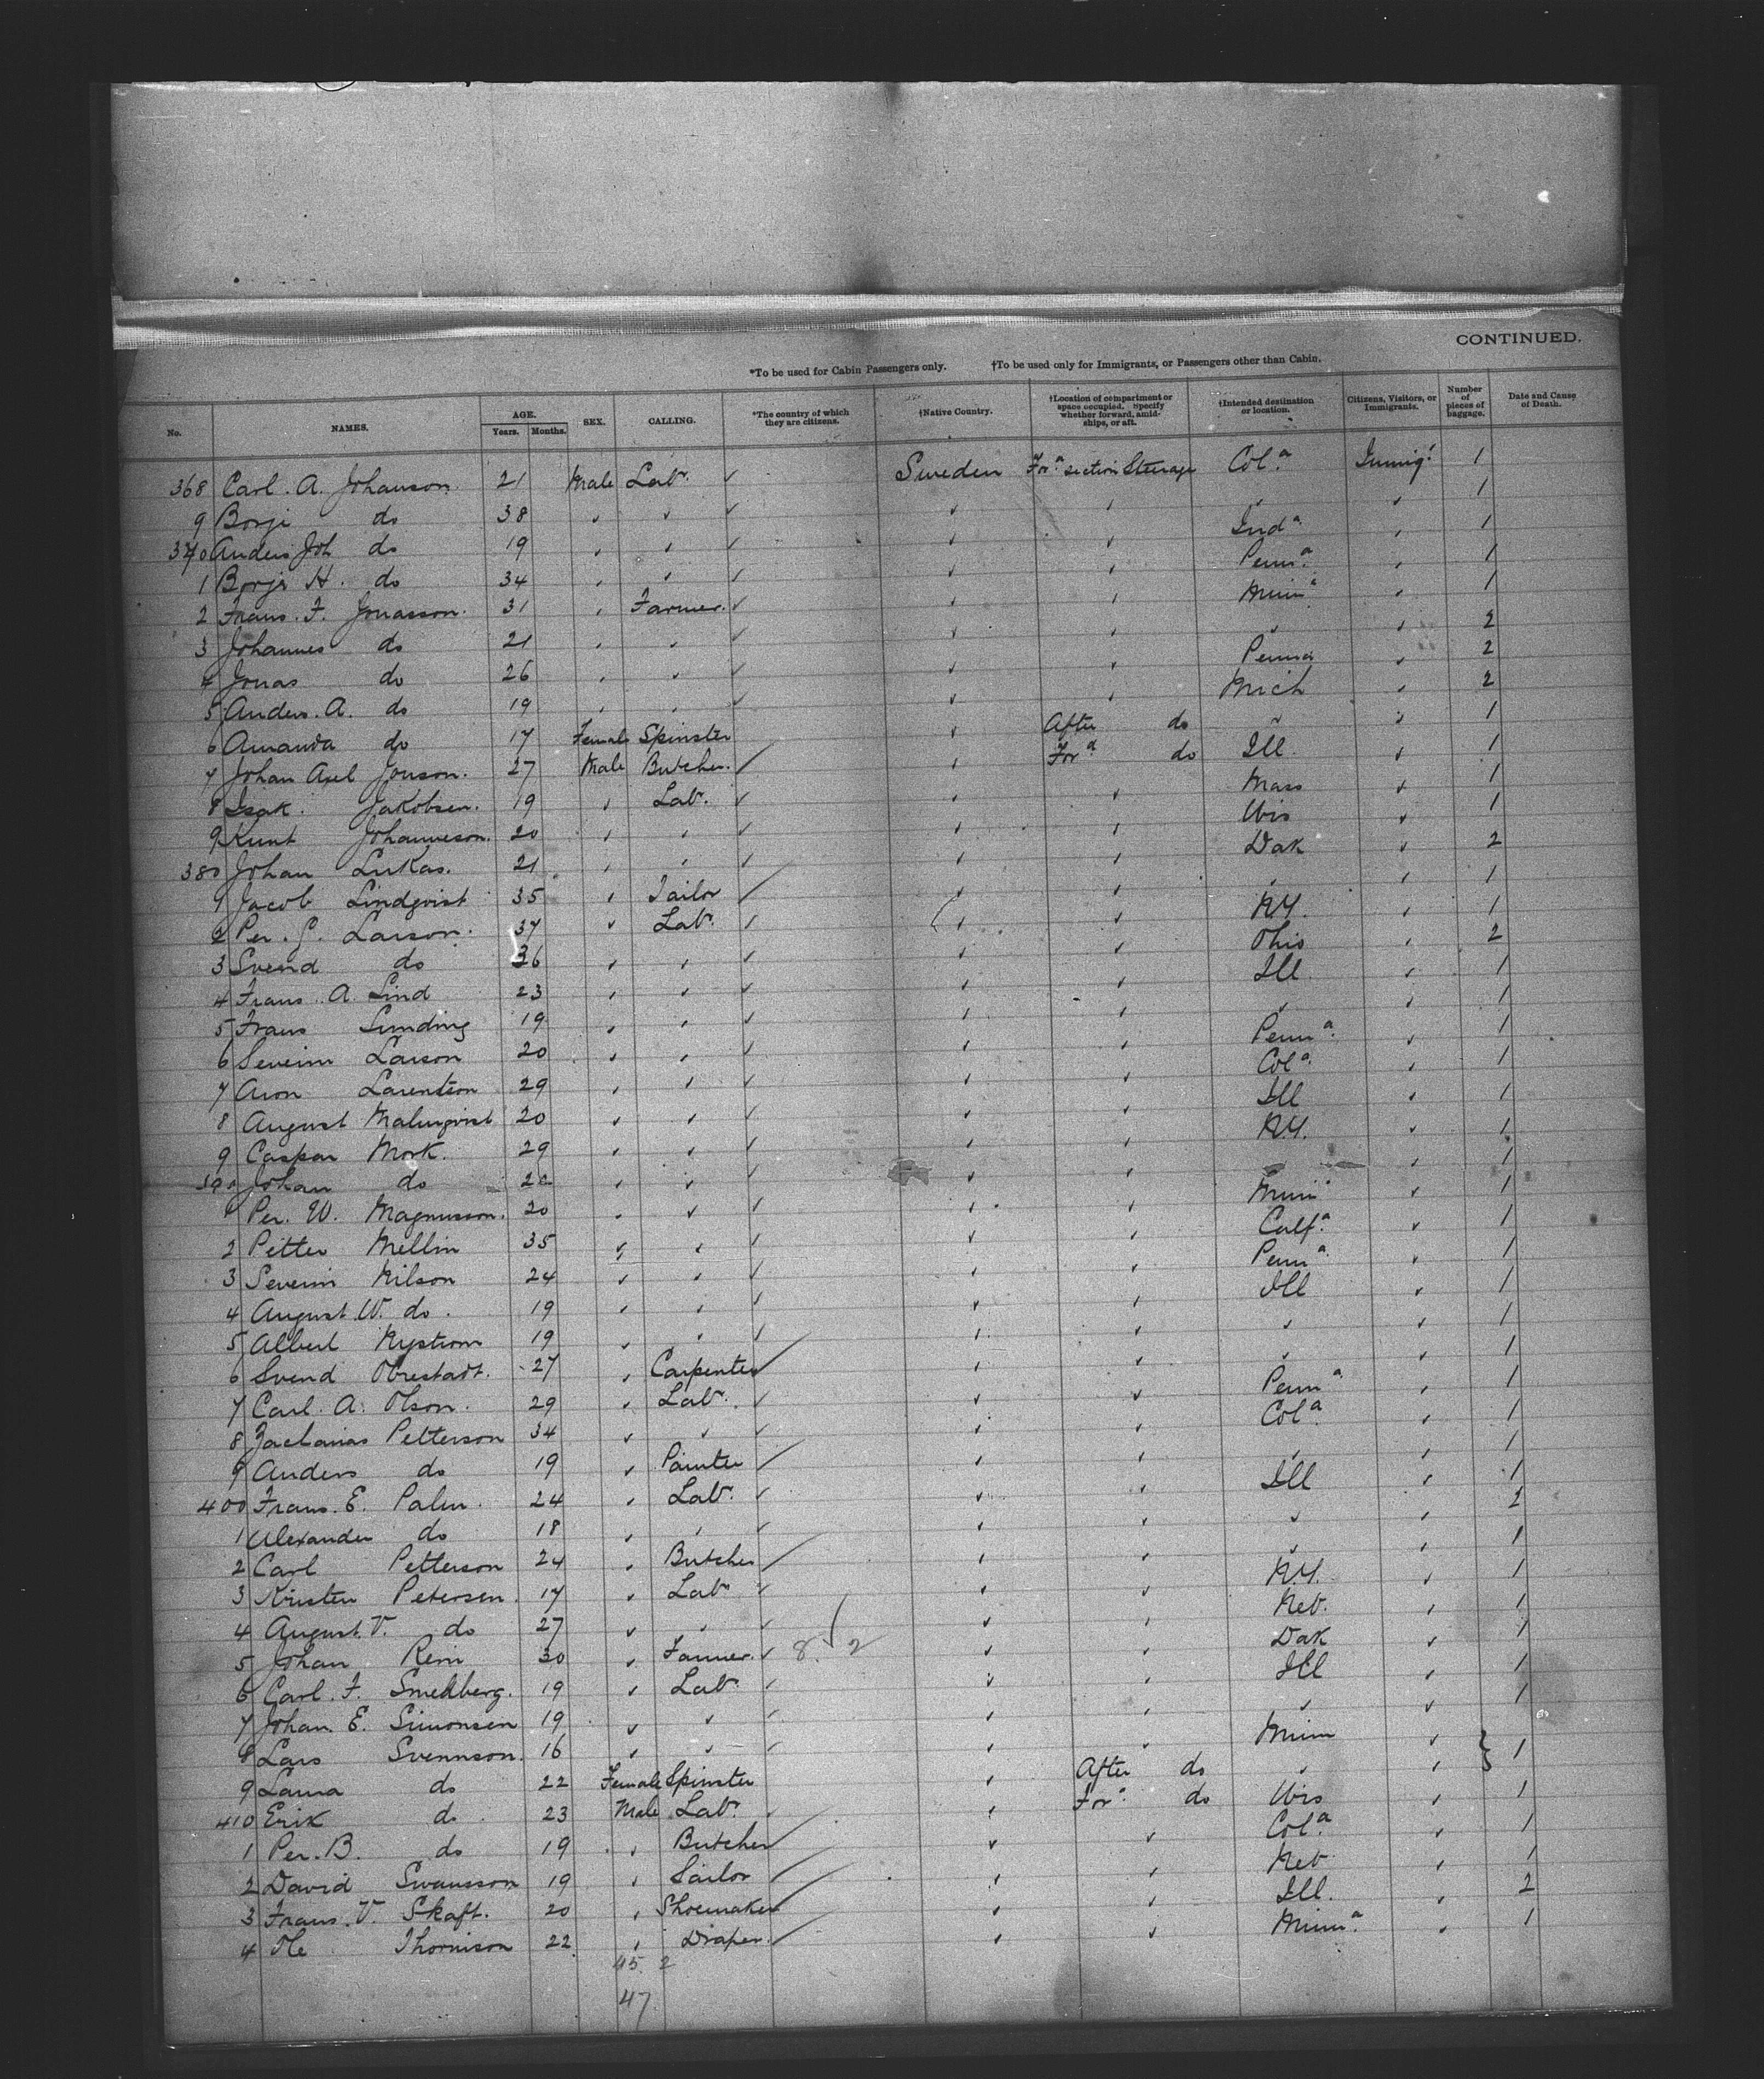 CONTINUED.
*To be used for Cabin Passengers only. †To be used only for Immigrants, or Passengers other than Cabin.
No. NAMES. AGE. Years. Months. SEX. CALLING. *The country of which they are citizens. †Native Country. †Location of compartment or space occupied. Specify whether forward, amidships, or aft. †Intended destination or location. Citizens, Visitors, or Immigrants. Number of pieces of baggage. Date and Cause of Death.
368 Carl. A. Johanson. 21 Male Labr. ✓ Sweden Ford section Steerage Cola Immigt 1
9 Borji do 38 ✓ ✓ ✓ ✓ ✓ ✓ ✓ 1
370 Anders Joh do 19 ✓ ✓ ✓ ✓ ✓ Inda ✓ 1
1 Borji H. do 34 ✓ ✓ ✓ ✓ ✓ Penna ✓ 1
2 Frans. F. Jonasson. 31 ✓ Farmer. ✓ ✓ ✓ Minna ✓ 1
3 Johannes do 21 ✓ ✓ ✓ ✓ ✓ ✓ ✓ 2
4 Jonas do 26 ✓ ✓ ✓ ✓ ✓ Penna ✓ 2
5 Anders. A. do 19 ✓ ✓ ✓ ✓ ✓ Mich ✓ 2
6 Amanda do 17 Female Spinster ✓ After do ✓ ✓ 1
7 Johan Axel Jonson. 27 Male Butcher. ✓ ✓ Ford do Ill. ✓ 1
8 Isak. Jakobsen. 19 ✓ Labr. ✓ ✓ ✓ Mass ✓ 1
9 Knut Johanneson. 20 ✓ ✓ ✓ ✓ ✓ Wis ✓ 1
380 Johan Lukas. 21 ✓ ✓ ✓ ✓ ✓ Dak ✓ 2
1 Jacob Lindqvist 35 ✓ Tailor ✓ ✓ ✓ ✓ ✓ 1
2 Per. P. Larson. 37 ✓ Labr. ✓ ✓ ✓ N.Y. ✓ 1
3 Svend do 36 ✓ ✓ ✓ ✓ ✓ Ohio ✓ 2
4 Frans. A. Lind 23 ✓ ✓ ✓ ✓ ✓ Ill. ✓ 1
5 Frans Lunding 19 ✓ ✓ ✓ ✓ ✓ ✓ ✓ 1
6 Severin Larson 20 ✓ ✓ ✓ ✓ ✓ Penna ✓ 1
7 Aron Larentson 29 ✓ ✓ ✓ ✓ ✓ Cola ✓ 1
8 August Malmqvist 20 ✓ ✓ ✓ ✓ ✓ Ill ✓ 1
9 Caspar Mork. 29 ✓ ✓ ✓ ✓ ✓ N.Y. ✓ 1
390 Johan do 22 ✓ ✓ ✓ ✓ ✓ ✓ 1
1 Per. W. Magnusson. 20 ✓ ✓ ✓ ✓ ✓ Minn ✓ 1
2 Petter Mellin 35 ✓ ✓ ✓ ✓ ✓ Calfa ✓ 1
3 Severin Nilson 24 ✓ ✓ ✓ ✓ ✓ Penna ✓ 1
4 August. W. do. 19 ✓ ✓ ✓ ✓ ✓ Ill ✓ 1
5 Albert Nystrom 19 ✓ ✓ ✓ ✓ ✓ ✓ ✓ 1
6 Svend Obrestadt. 27 ✓ Carpenter ✓ ✓ ✓ ✓ ✓ 1
7 Carl. A. Olson. 29 ✓ Labr. ✓ ✓ ✓ Penna ✓ 1
8 Zacharias Petterson 34 ✓ ✓ ✓ ✓ ✓ Cola ✓ 1
9 Anders do 19 ✓ Painter ✓ ✓ ✓ ✓ ✓ 1
400 Frans. E. Palm. 24 ✓ Labr. ✓ ✓ ✓ Ill ✓ 1
1 Alexander do 18 ✓ ✓ ✓ ✓ ✓ ✓ ✓ 2
2 Carl Petterson 24 ✓ Butcher ✓ ✓ ✓ ✓ ✓ 1
3 Kristen Petersen. 17 ✓ Labr ✓ ✓ ✓ N.Y. ✓ 1
4 August. V. do 27 ✓ ✓ ✓ ✓ ✓ Neb. ✓ 1
5 Johan Rem 30 ✓ Farmer. ✓ 8. ✓ 2 ✓ ✓ Dak ✓ 1
6 Carl. F. Smedberg. 19 ✓ Labr. ✓ ✓ ✓ Ill ✓ 1
7 Johan. E. Simonsen 19 ✓ ✓ ✓ ✓ ✓ ✓ ✓ 1
8 Lars Svennson. 16 ✓ ✓ ✓ ✓ ✓ Minn ✓ } 1
9 Laura do 22 Female Spinster ✓ After do ✓ ✓
410 Erik do. 23 Male Labr. ✓ ✓ Ford do Wis ✓ 1
1 Per. B. do 19 ✓ Butcher ✓ ✓ ✓ Cola ✓ 1
2 David Swansson 19 ✓ Sailor ✓ ✓ ✓ Neb ✓ 1
3 Frans. V. Skaft. 20 ✓ Shoemaker ✓ ✓ ✓ Ill. ✓ 2
4 Ole Thornison 22 ✓ Draper. ✓ ✓ ✓ Minna ✓ 1
45. 2
47